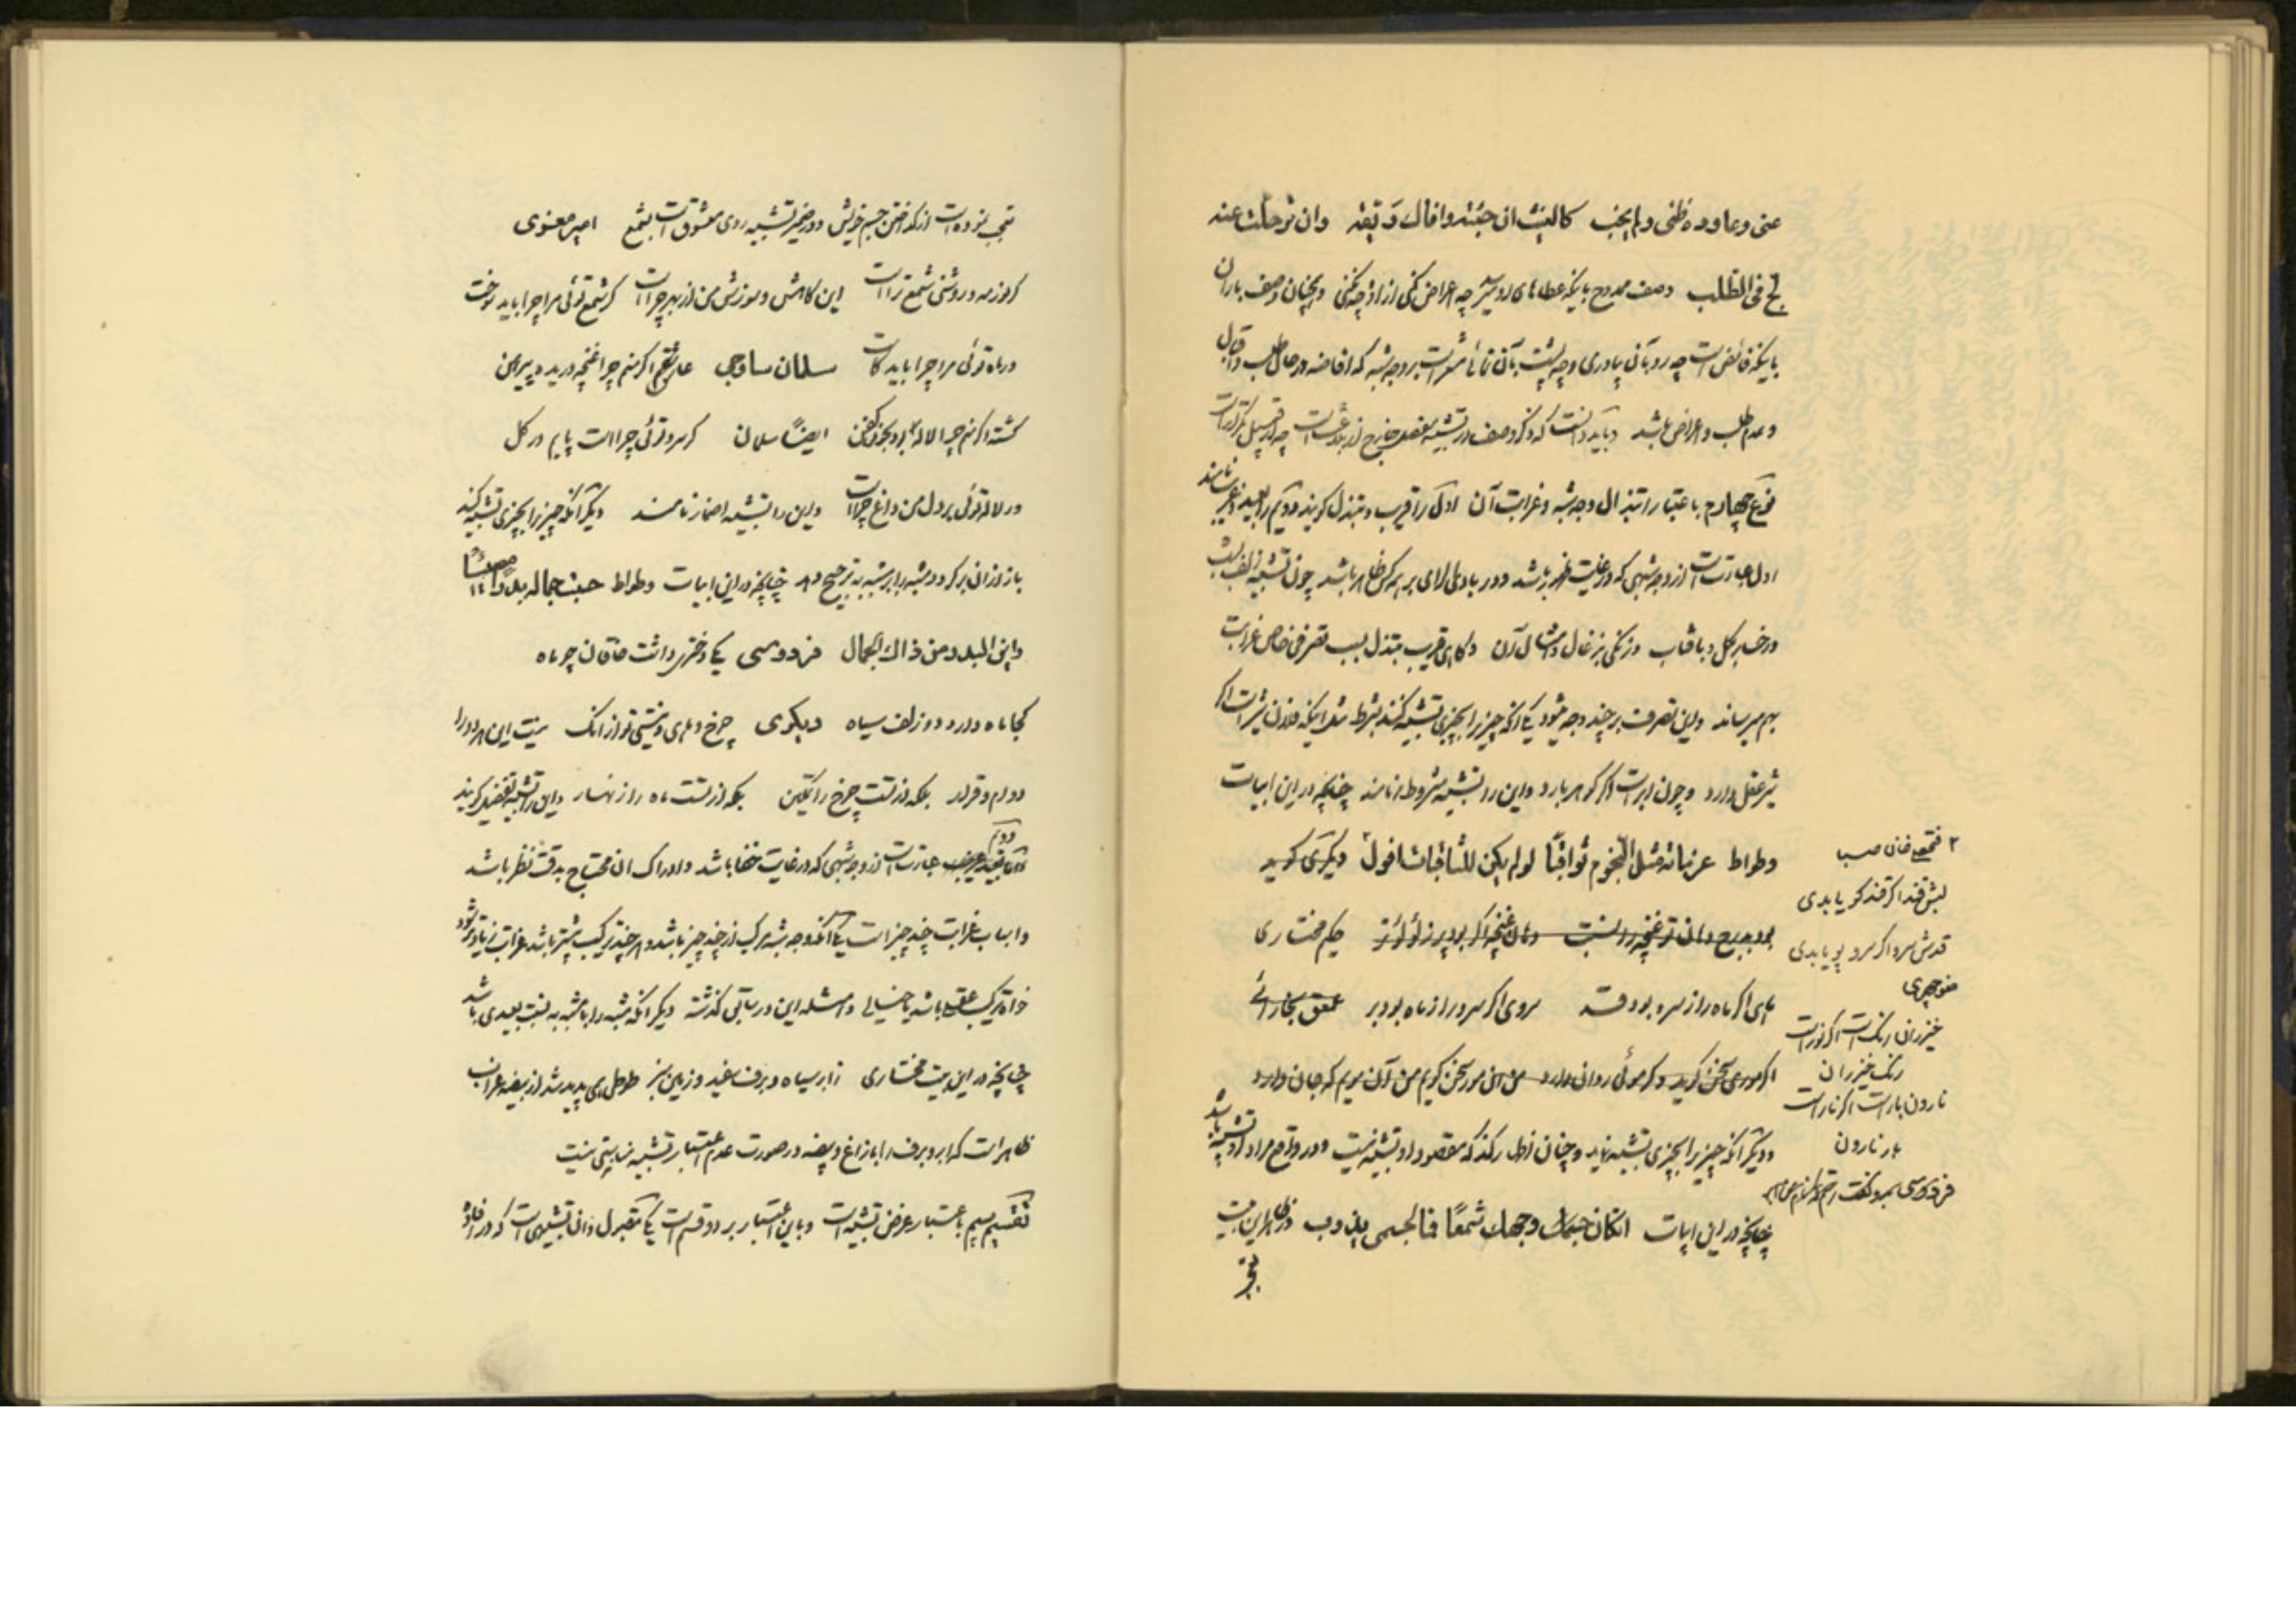 عنی و عاوده ظنی ولم یخب کالغیث ان جئته وافاک ریقه وان ترحلت عنه
لج فی الطلب وصف ممدوح باینکه عطاهای او میرسد چه اعراض کنی از او چه نکنی و همچنان وصف باران
باینکه فائض است چه رو بآن بیاوری و چه پشت بآن نمائی مشعر است بر وجه شبه که افاضه در حال طلب و اقبال
و عدم طلب و اعراض باشد و باید دانست که ذکر وصف در تشبیه مفصل خارج از بلاغت است چه از قبیل تکرار است
نوع چهارم باعتبار ابتذال وجه شبه و غرابت آن اول را قریب و مبتذل گویند و دویم را بعید و غریب نامند
اول عبارتست از وجه شبهی که در غایت ظهور باشد و در بادی الرای بر همه کس ظاهر باشد چون تشبیه زلف بشب
و رخسار بگل و بآفتاب و زنگی بزغال و امثال آن و گاهی قریب مبتذل بسبب تصرفی خاص غرابت
بهم میرساند و این تصرف بر چند وجه میشود یکی آنکه چیزیرا بچیزی تشبیه کنند بشرط مثل اینکه فلان شیر است اگر
شیر عقل دارد و چون ابر است اگر گوهر بارد و این را تشبیه مشروط نامند چنانچه در این ابیات
وطواط عزماته مثل النجوم ثواقبا لو لم یکن للثاقبات افول دیگری گوید
بود بدیع دهان تو غنچه را نسبت دهان غنچه اگر بود پر ز لؤلؤ تر حکیم مختاری
ماهی اگر ماه را ز سرو بود قد سروی اگر سرو را ز ماه بود بر عمعق بخارائی
اگر موری سخن گوید و گر موئی روان دارد من آن مور سخن گویم من آن مویم که جان دارد
و دیگر آنکه چیزیرا بچیزی تشبیه نماید و چنان اظهار کند که مقصود او تشبیه نیست و در واقع مراد او تشبیه باشد
چنانچه در این ابیات ان کان وجهک شمعا فما لجسمی یذوب در ظاهر این بیت
تعجب
۲ فتحعلی خان صبا
لبش قند اگر قند گویا بدی
قدش سرو اگر سرو پویا بدی
منوچهری
خیزران رنگست اگر نور است
رنگ خیزران
نارون بار است اگر نار است
بار نارون
تعجب نموده است از گداختن جسم خویش و در ضمیر تشبیه روی معشوق است بشمع امیر معزی
گر نور مه و روشنی شمع تراست این کاهش و سوزش من از بهر چراست گر شمع توئی مرا چرا باید سوخت
ور ماه توئی مرا چرا باید کاست سلمان ساوجی عاشقم اگر منم چرا غنچه دریده پیرهن
کشته اگر منم چرا لاله بود بخون کفن ایضاً سلمان گر سرو توئی چراست پایم در گل
ور لاله توئی بر دل من داغ چراست و این را تشبیه اضمار نامند دیگر آنکه چیزیرا بچیزی تشبیه کند
باز از آن برگردد و مشبه را بر مشبه به ترجیح دهد چنانچه در این ابیات وطواط حسبت جماله بدرا مضیئا
و این البدر من ذاک الجمال فردوسی یکی دختری داشت خاقان چو ماه
کجا ماه دارد دو زلف سیاه دیگری چرخ و مهی و نیستی تو از آنک نیست این هر دو را
دوام و قرار بلکه از تست چرخ را تمکین بلکه از تست ماه را زنهار و این را تشبیه تفضیل گویند
دوم عبارتست از وجه شبهی که در غایت خفا باشد و ادراک آن محتاج بدقت نظر باشد
و اسباب غرابت چند چیز است یکی آنکه وجه شبه مرکب از چند چیز باشد و هر چند ترکیب بیشتر باشد غرابت زیادتر شود
خواه ترکیب عقلی باشد یا خیالی و امثله این در سابق گذشته دیگر آنکه مشبه را با مشبه به نسبت بعیدی باشد
چنانچه در این بیت مختاری ز ابر سیاه و برف سفید و زمین سبز طوطی همی پدید شد از بیضه غراب
ظاهر است که ابر و برف را با زاغ و بیضه در صورت عدم اعتبار تشبیه مناسبتی نیست
تقسیم سیم باعتبار غرض تشبیه است و باین اعتبار بر دو قسم است یکی مقبول و آن تشبیهی است که در افاده